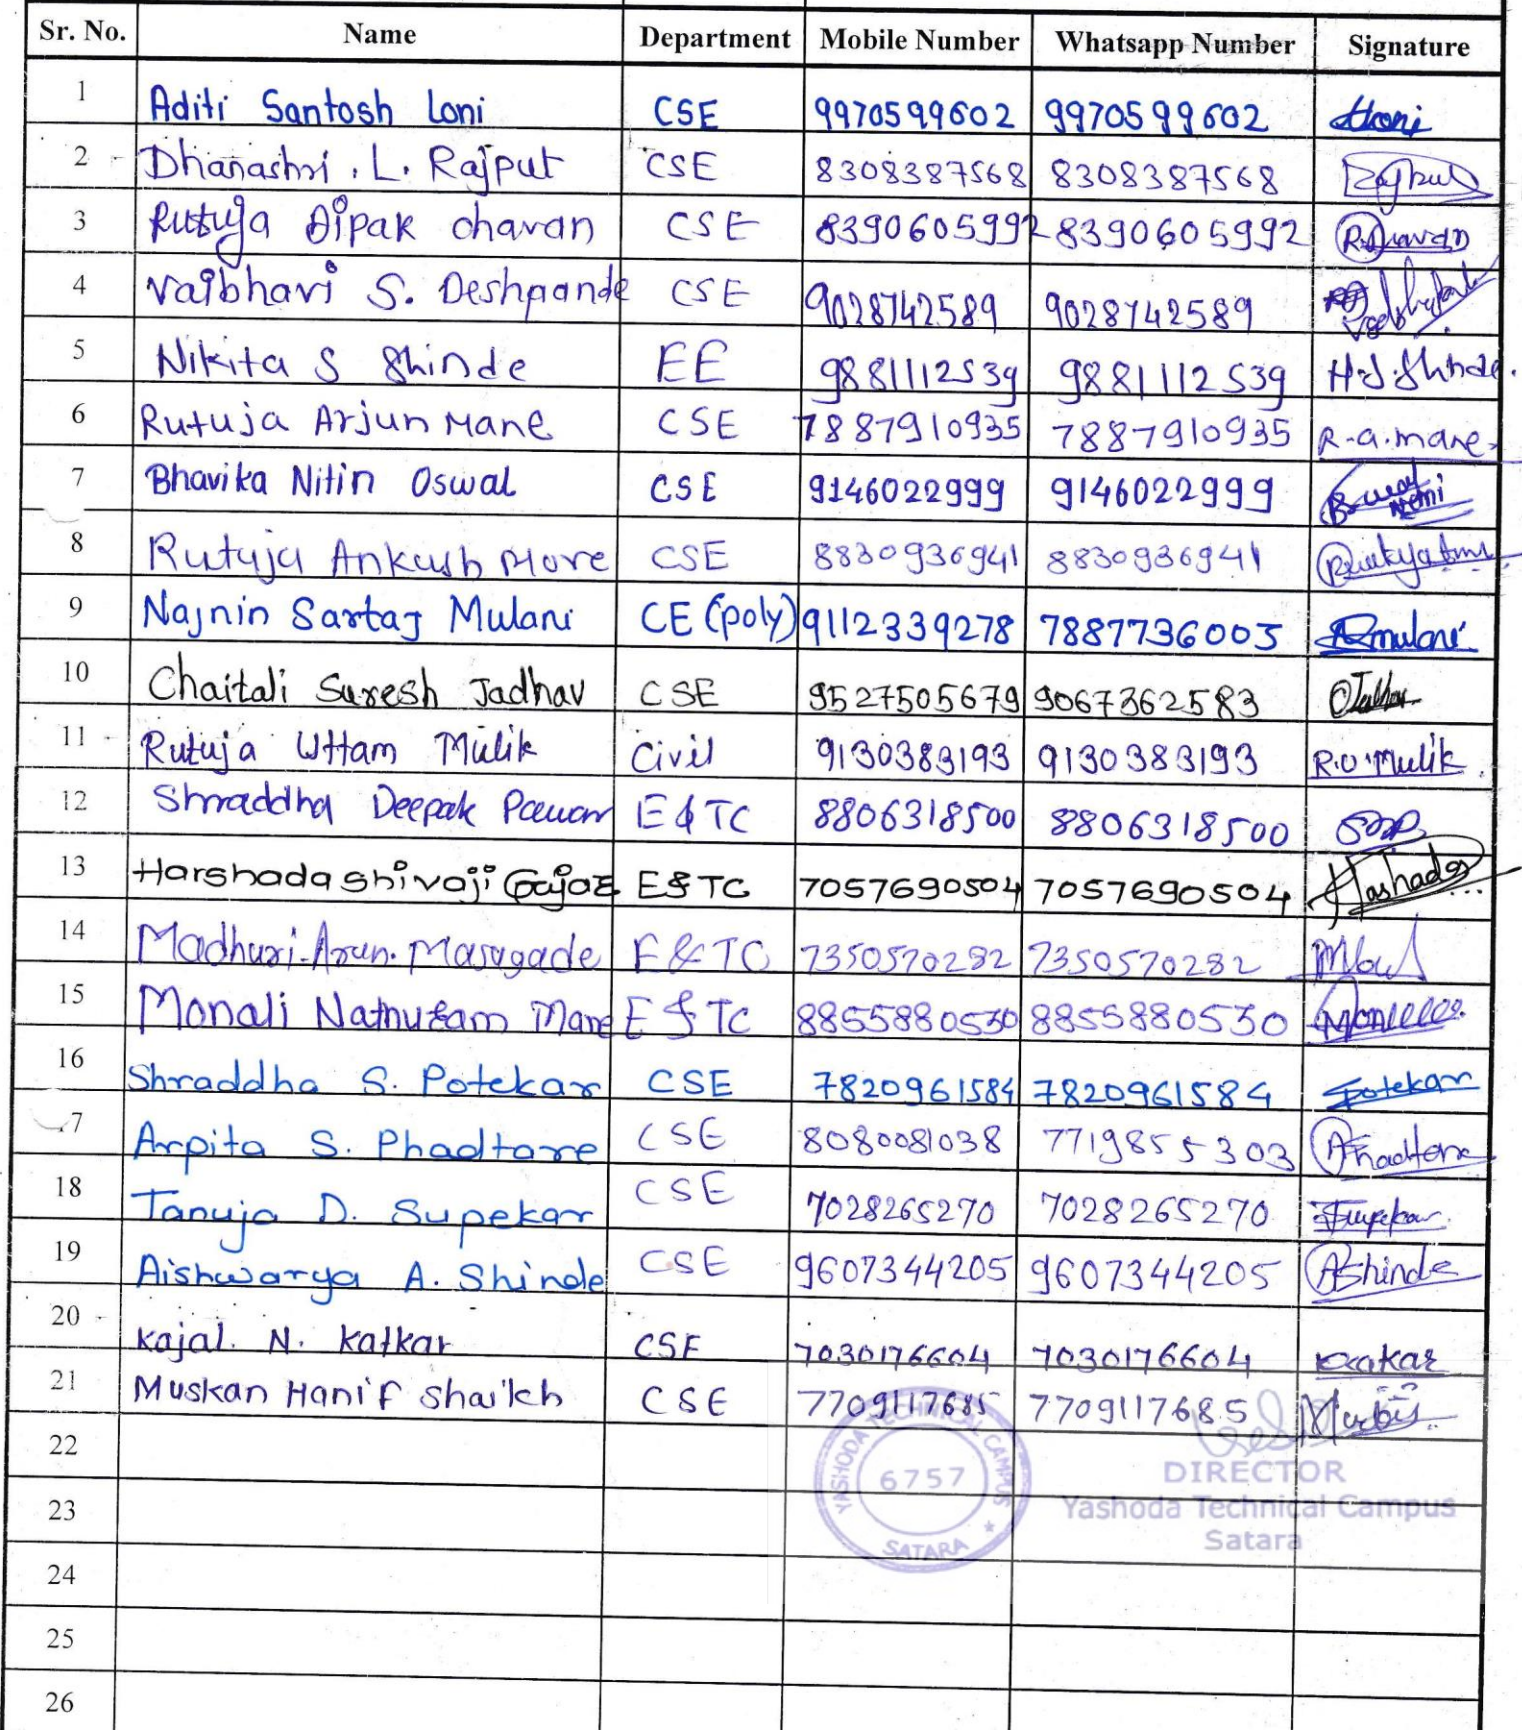 Sr. No. Name Department Mobile Number Whatsapp Number Signature
1 Aditi Santosh Loni CSE 9970599602 9970599602 Loni
2 Dhanashri . L. Rajput CSE 8308387568 8308387568
3 Rutuja Dipak chavan CSE 8390605992 8390605992
4 Vaibhavi S. Deshpande CSE 9028742589 9028742589
5 Nikita S Shinde EE 9881112539 9881112539
6 Rutuja Arjun Mane CSE 7887910935 7887910935 R.a.mane
7 Bhavika Nitin Oswal CSE 9146022999 9146022999
8 Rutuja Ankush More CSE 8830936941 8830936941
9 Najnin Sartaj Mulani CE (poly) 9112339278 7887736003 mulani
10 Chaitali Suresh Jadhav CSE 9527505679 9067362583
11 Rutuja Uttam Mulik Civil 9130383193 9130383193 R.U.Mulik
12 Shraddha Deepak Pawar E&TC 8806318500 8806318500
13 Harshada Shivaji Gajar E&TC 7057690504 7057690504
14 Madhuri. Arun. Masugade E&TC 7350570282 7350570282
15 Monali Nathuram Mane E&TC 8855880530 8855880530
16 Shraddha S. Potekar CSE 7820961584 7820961584 Potekar
17 Arpita S. Phadtare CSE 8080081038 7719855303
18 Tanuja D. Supekar CSE 7028265270 7028265270
19 Aishwarya A. Shinde CSE 9607344205 9607344205 AShinde
20 Kajal. N. Katkar CSE 7030176604 7030176604
21 Muskan Hanif Shaikh CSE 7709117685 7709117685
22
YASHODA TECHNICAL CAMPUS
6757
SATARA
DIRECTOR
23
Yashoda Technical Campus
Satara
24
25
26